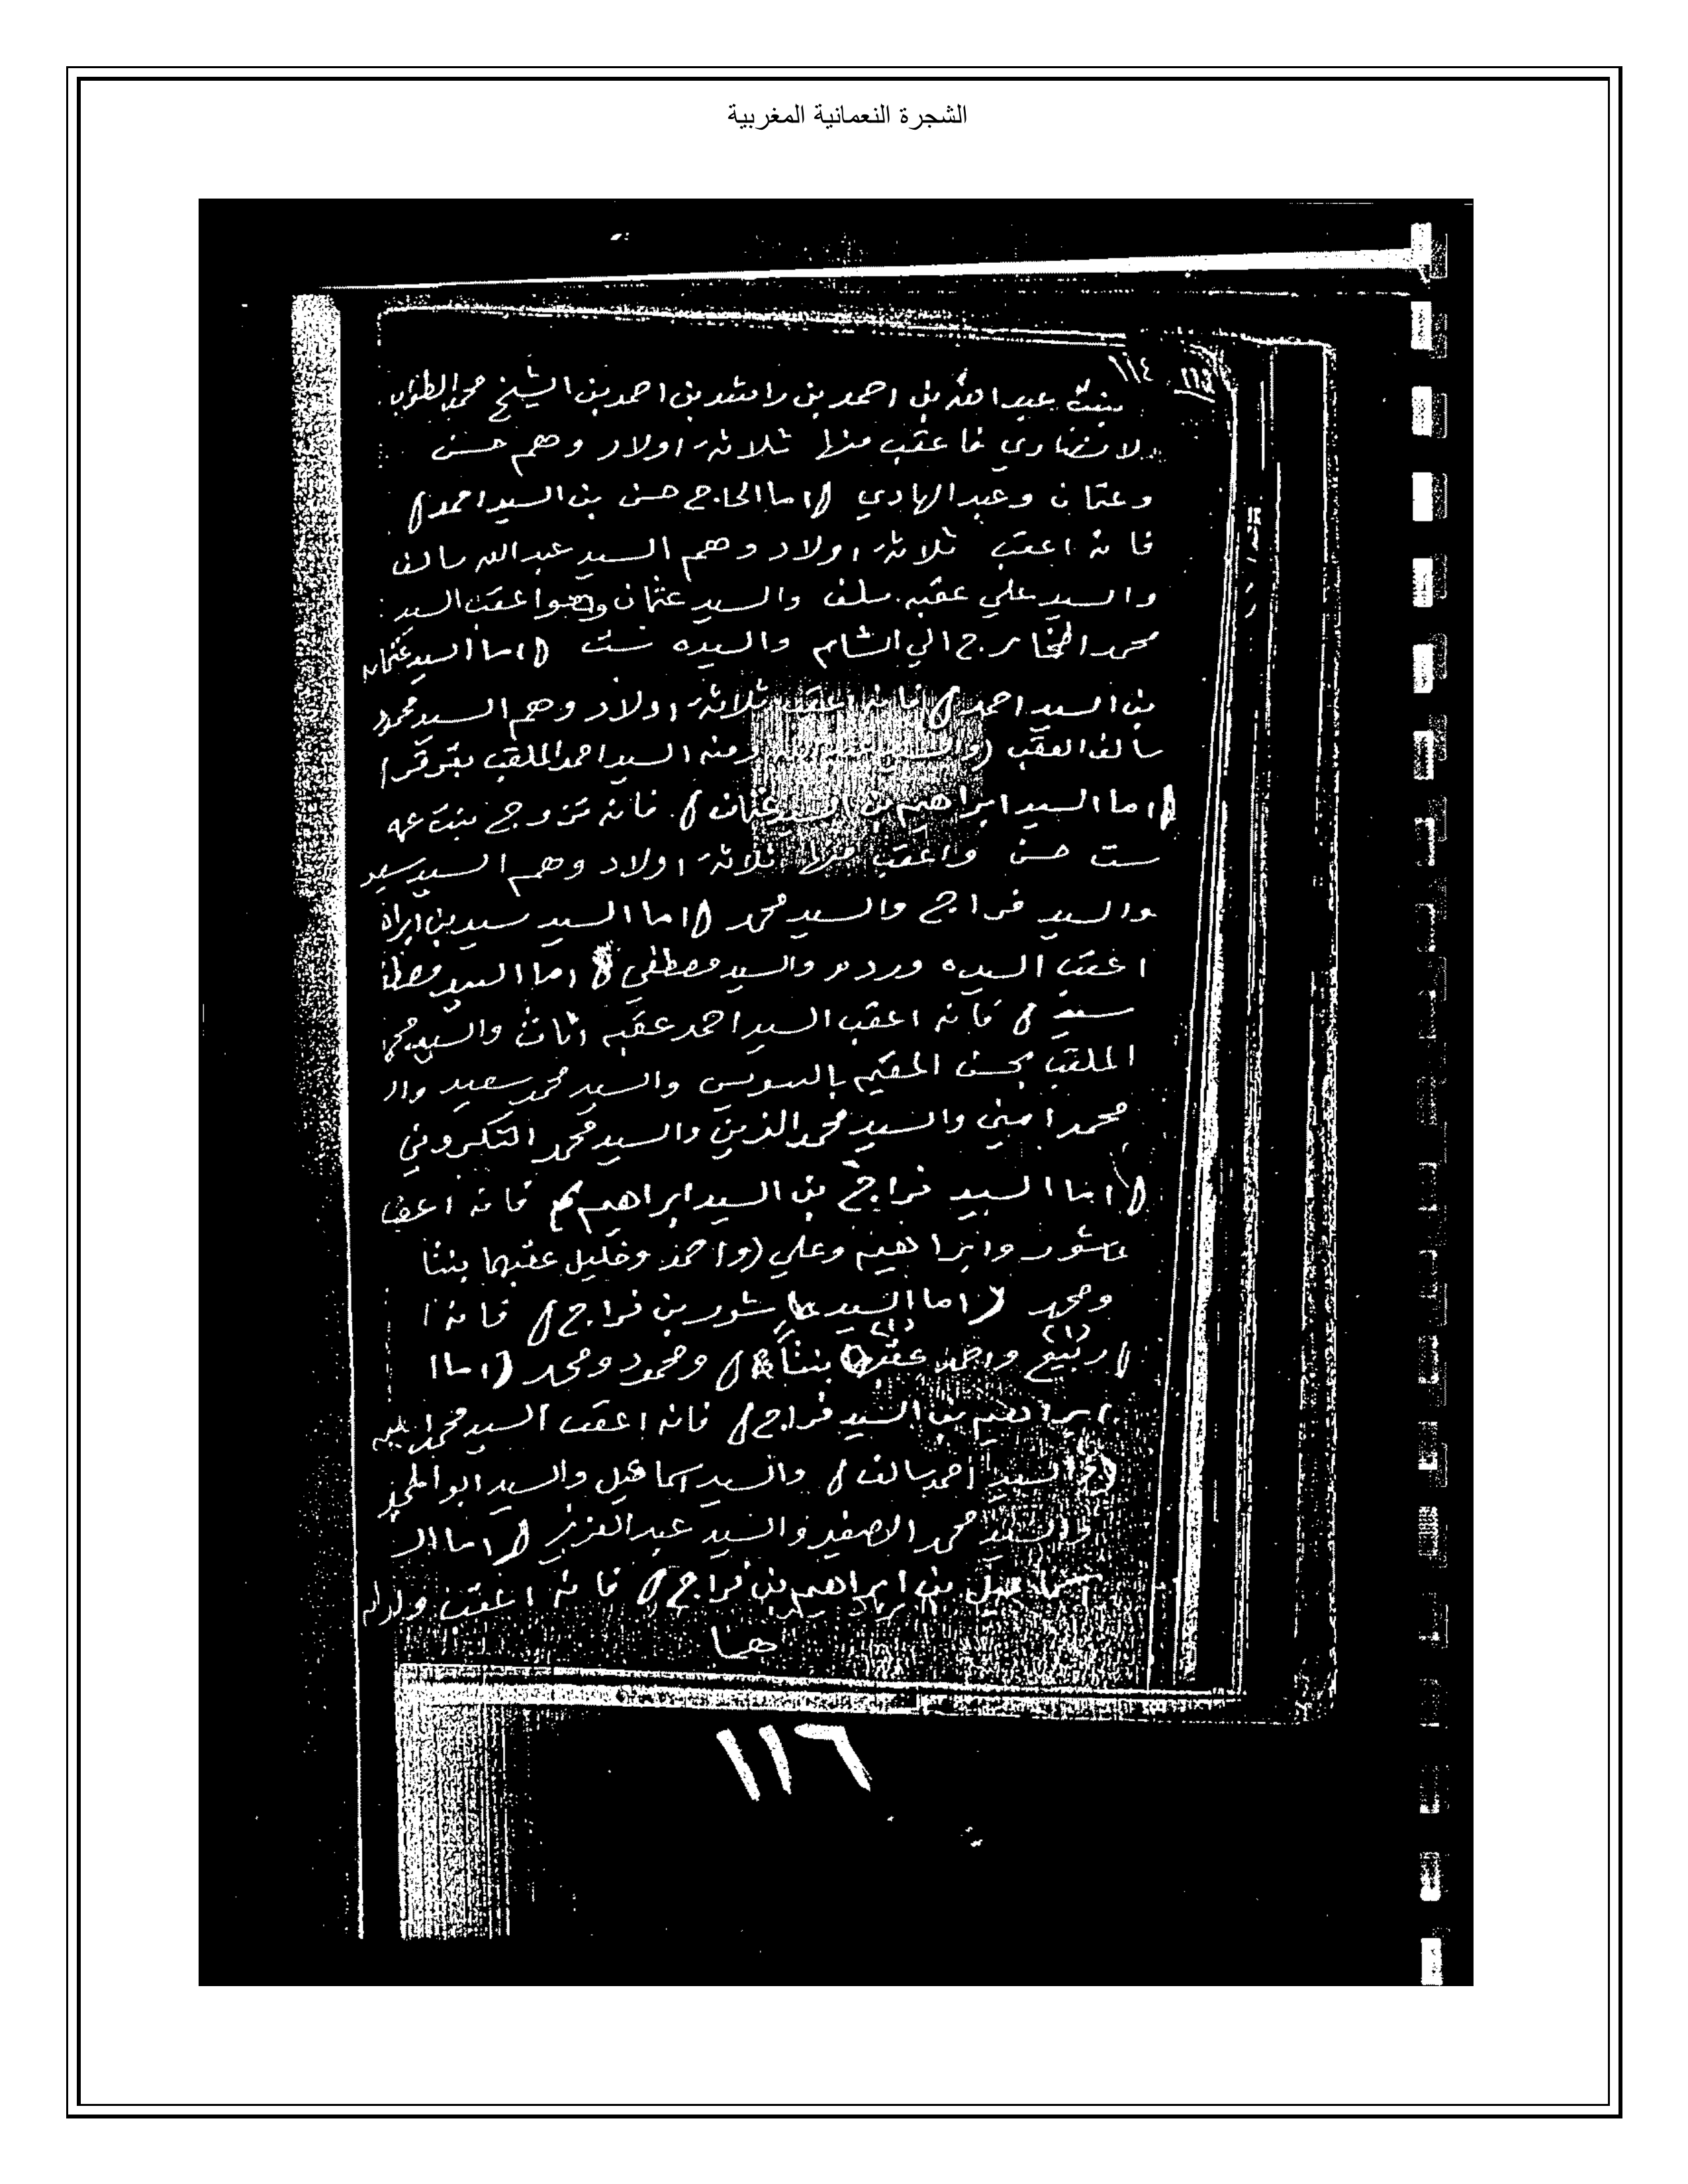 الشجرة النعمانية المغربية
١١٤
بنت عبد الله بن احمد بن راشد بن احمد بن الشيخ محمد
فاعقب منها ثلاثة اولاد وهم حسن
وعثمان وعبد الهادي (اما الحاج حسن بن السيد احمد)
فانه اعقب ثلاثة اولاد وهم السيد عبد الله سالف
والسيد علي عقبه سلف والسيد عثمان وهو اعقب السيد
محمد الخارج الي الشام والسيده ست (اما السيد عثمان
بن السيد احمد) فانه اعقب ثلاثة اولاد وهم السيد محمود
سالف العقب ومنه السيد احمد الملقب
(اما السيد ابراهيم بن السيد عثمان) فانه تزوج بنت عمه
ست حسن واعقب منها ثلاثة اولاد وهم السيد سيد
والسيد فراج والسيد محمد (اما السيد سيد بن ابراه
اعقب السيده ورده والسيد مصطفي (اما السيد مصطفا
سيد) فانه اعقب السيد احمد عقبه اناث والسيد محمد
الملقب بحسن المقيم بالسويس والسيد محمد سعيد وال
محمد امين والسيد محمد الزين والسيد محمد التكروني
(اما السيد فراج بن السيد ابراهيم) فانه اعقب
عاشور وابراهيم وعلي (واحمد وخليل عقبهما بنتا
ومحمد (اما السيد عاشور بن فراج) فانه ا
(ربيع واحمد بنتا) ومحمود ومحمد (اما ا
ابراهيم بن السيد فراج) فانه اعقب السيد محمد
السيد احمد سالف) والسيد اسماعيل والسيد ابو المجد
والسيد محمد الصغير والسيد عبد العزيز (اما ال
اسماعيل بن ابراهيم بن فراج) فانه اعقب ولدا
هـا
١١٦